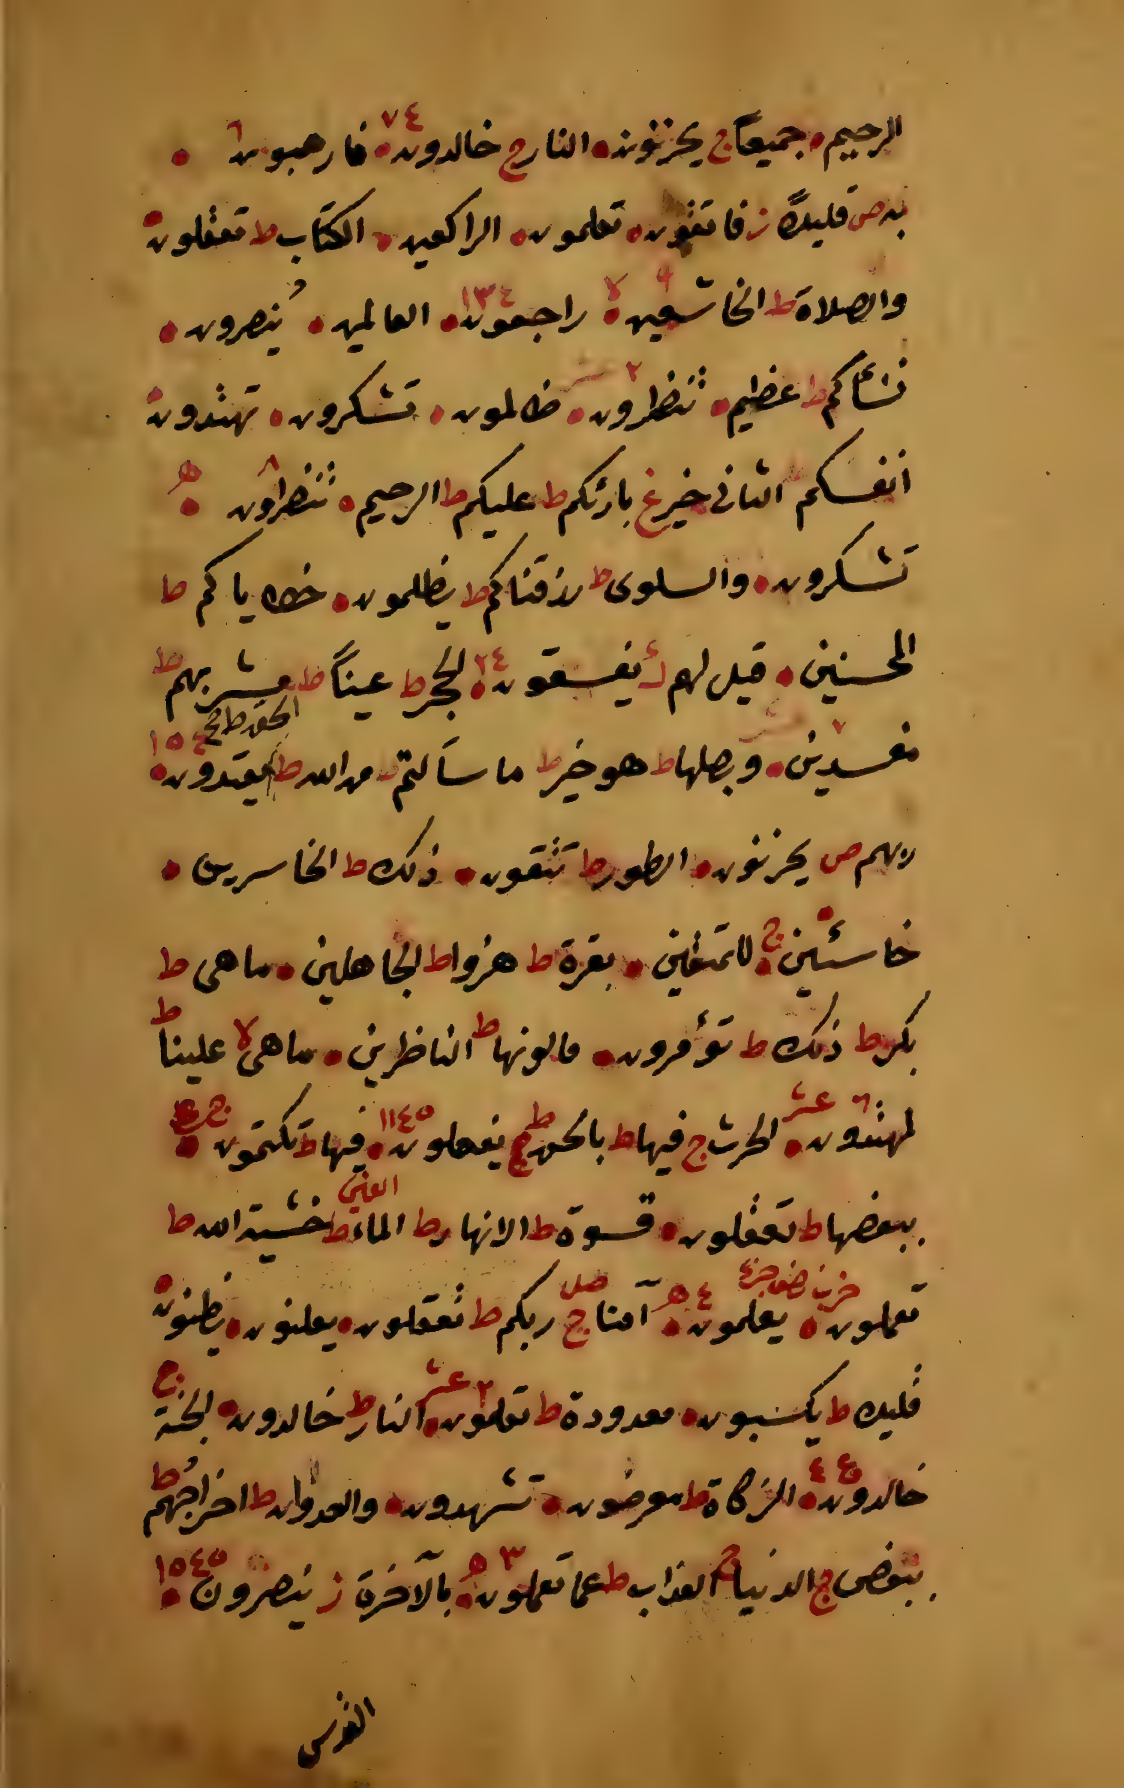 الرحيم • جميعاً ج يحزنون • النار ج خالدون • ٧٤ فارهبون ٦ •
به ص قليلاً ز فاتقون • تعلمون • الراكعين • الكتاب ط تعقلون •
والصلاة ط الخاشعين لا • راجعون • ١٣٤ العالمين • يُنصرون •
نسائكم ط عظيم • تنظرون • ظالمون • تشكرون • تهتدون •
انفسكم الثانى خير غ بارئكم ط عليكم ط الرحيم • تنظرون • ٨ ه
تشكرون • والسلوى ط رزقناكم ط يظلمون • خطاياكم ط
المحسنين • قيل لهم يفسقون • ٢٤ الحجر ط عيناً ط مشربهم ط
مفسدين • وبصلها ط هو خير ط ما سألتم ط من الله ط الحق ط يعتدون • ١٥٤
ربهم ص يحزنون • الطور ط تتقون • ذلك ط الخاسرين •
خاسئين ج • للمتقين • بقرة ط هزوا ط الجاهلين • ما هى ط
بكر ط ذلك ط تؤمرون • مالونها ط الناظرين • ما هى لا علينا ط
لمهتدون • ٦ عشر الحرث ج فيها ط بالحق ط يفعلون • ١١٤٥ فيها ط تكتمون •
ببعضها ط تعقلون • قسوة ط الانهار ط الماء ط خشية الله ط
تعملون • يعلمون • ٤ ه آمنا ج صل ربكم ط تعقلون • يعلنون • يظنون •
قليلا ط يكسبون • معدودة ط تعلمون • ٢ عشر النار ط خالدون • الجنة ج
خالدون • ٤ ع الزكاة ط معرضون • تشهدون • والعدوان ط اخراجُهم ط
ببعض ج الدنيا ج العذاب ط عما تعملون • ٣ ه بالآخرة ز ينصرون • ١٥٤٥
القدس